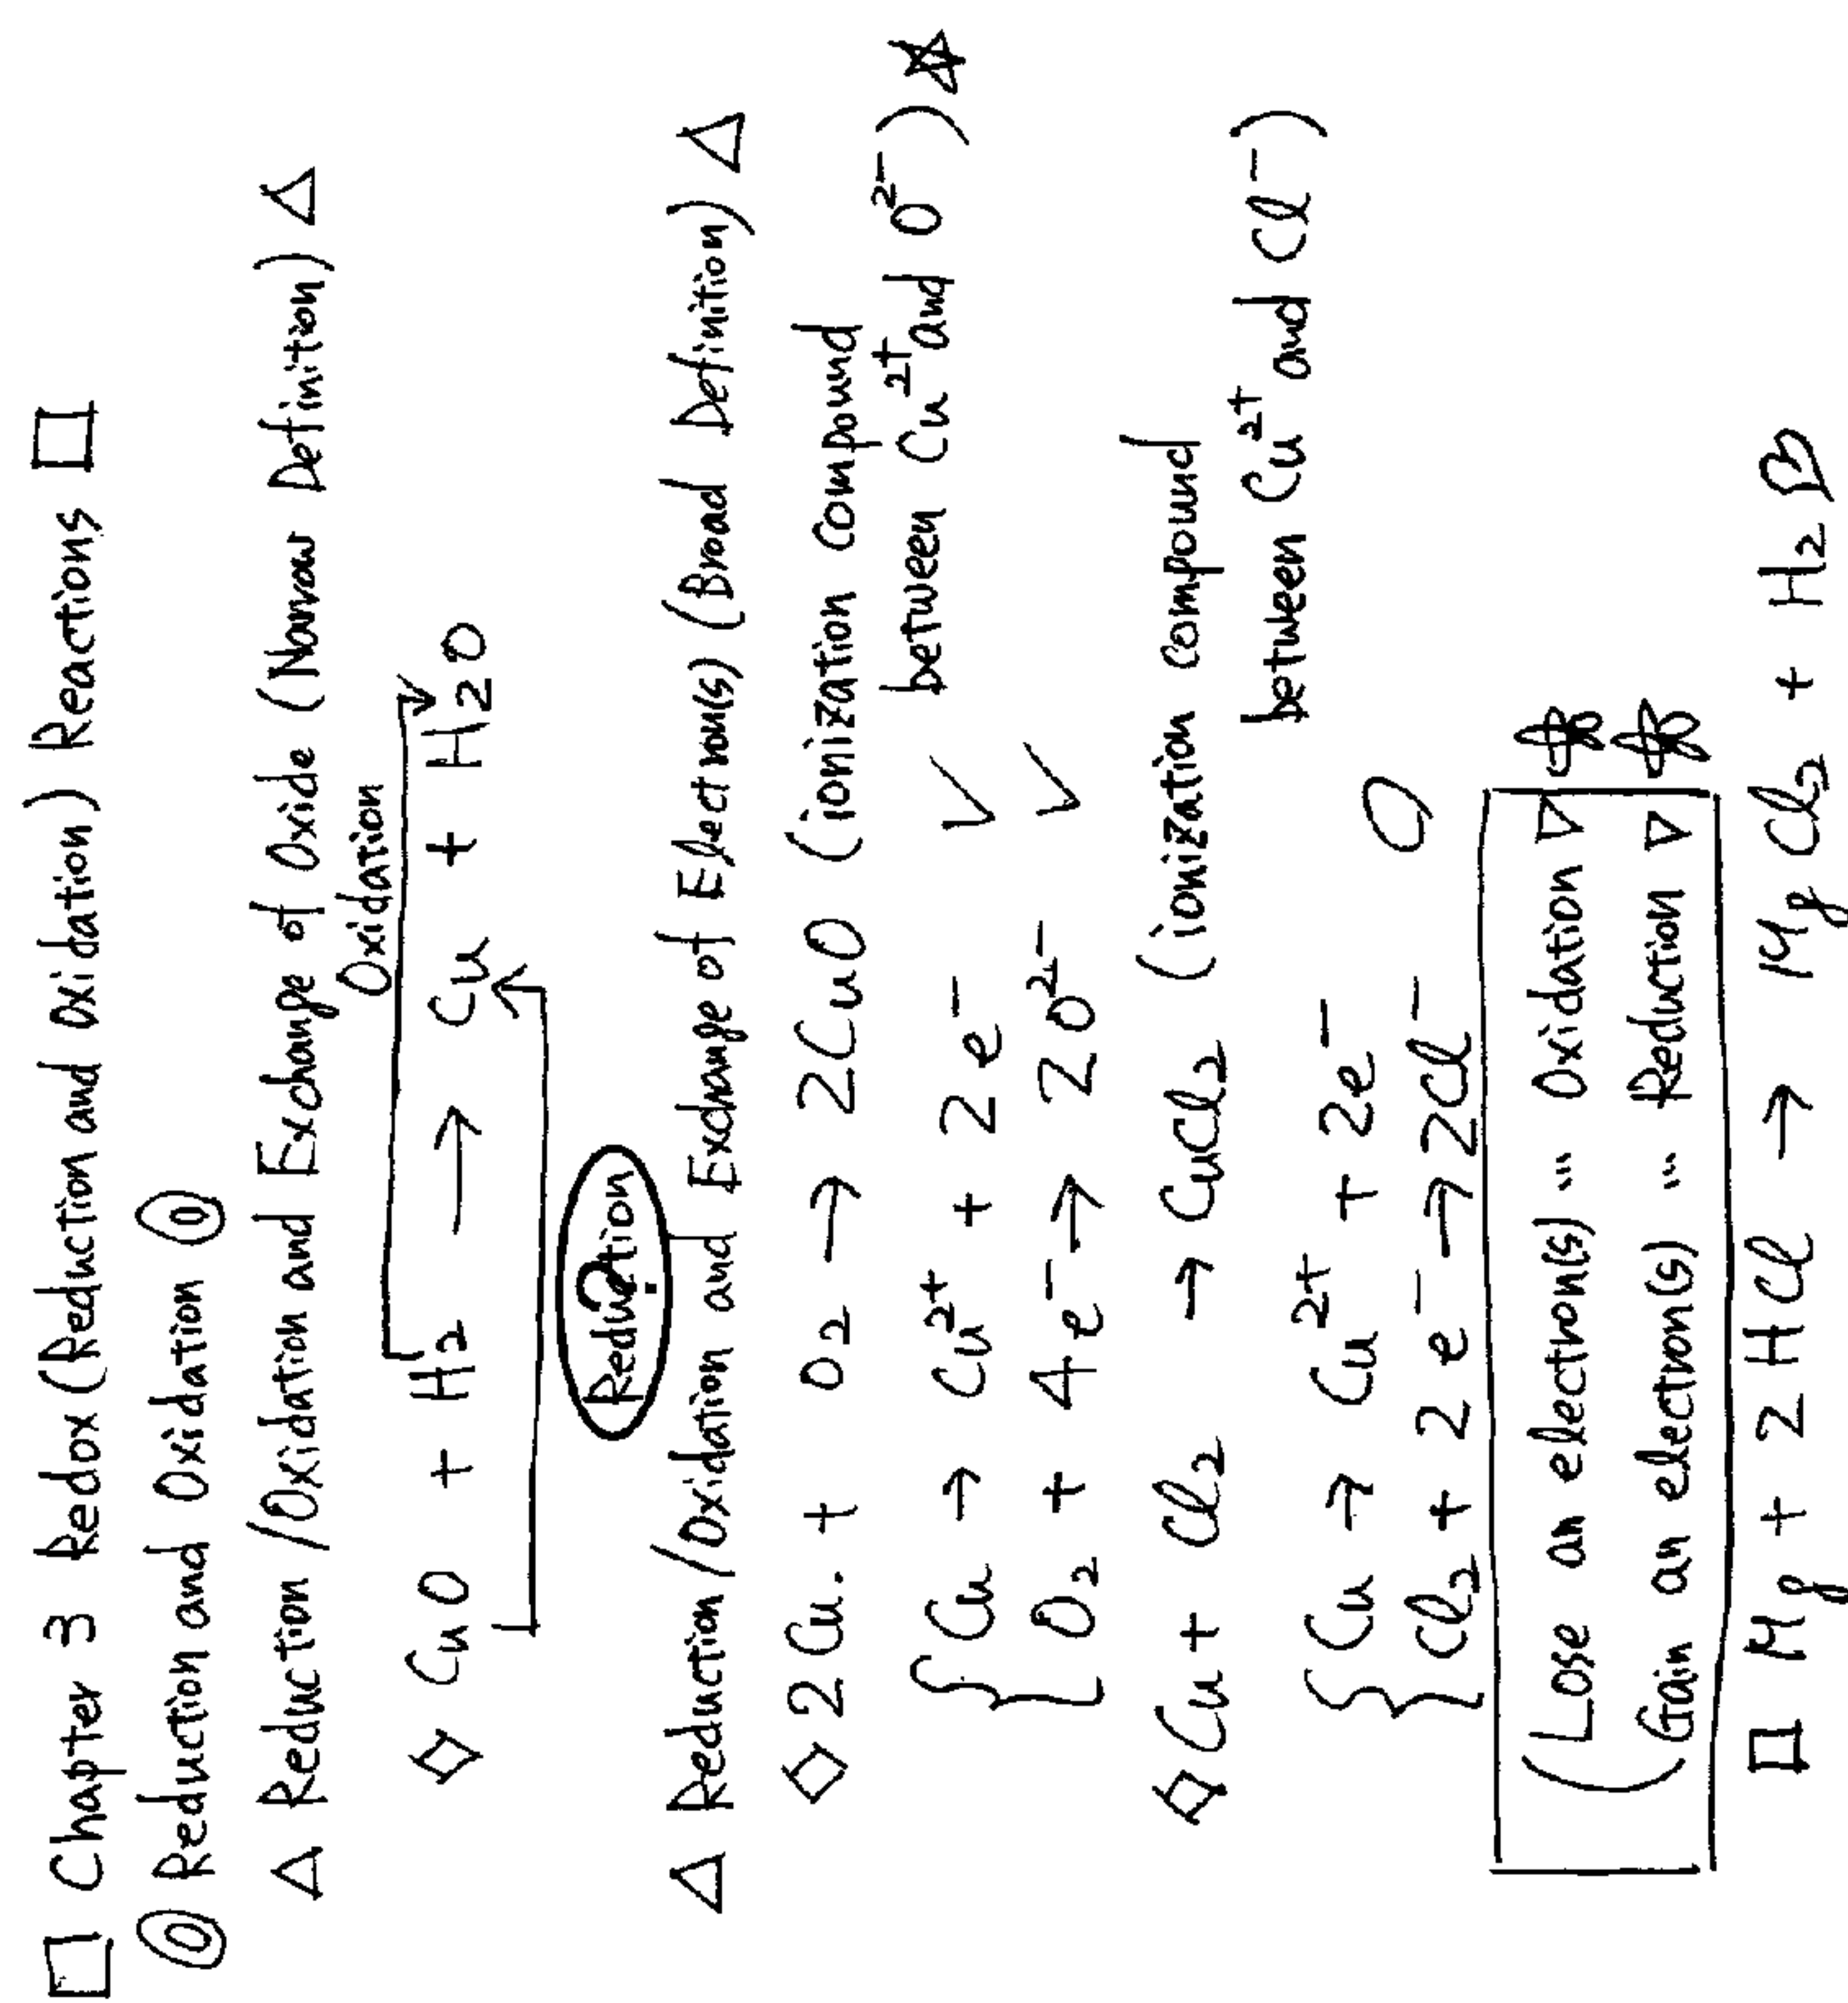 □ Chapter 3 Redox (Reduction and Oxidation) Reactions □
◎ Reduction and Oxidation ◎
△ Reduction /Oxidation and Exchange of Oxide (Narrow Definition) △
Oxidation
◇ CuO + H₂ → Cu + H₂O
Reduction
?
△ Reduction /Oxidation and Exchange of Electron(s) (Broad Definition) △
◇ 2Cu. + O₂ → 2CuO (ionization compound
between Cu²⁺ and O²⁻) ☆
{ Cu → Cu²⁺ + 2e⁻ ✓
O₂ + 4e⁻ → 2O²⁻ ✓
◇ Cu + Cl₂ → CuCl₂ (ionization compound
between Cu²⁺ and Cl⁻)
{ Cu → Cu²⁺ + 2e⁻
Cl₂ + 2e⁻ → 2Cl⁻ ○
(Lose an electron(s) … Oxidation ▽
Gain an electron(s) … Reduction ▽
□ Mg + 2HCl → MgCl₂ + H₂ ♡